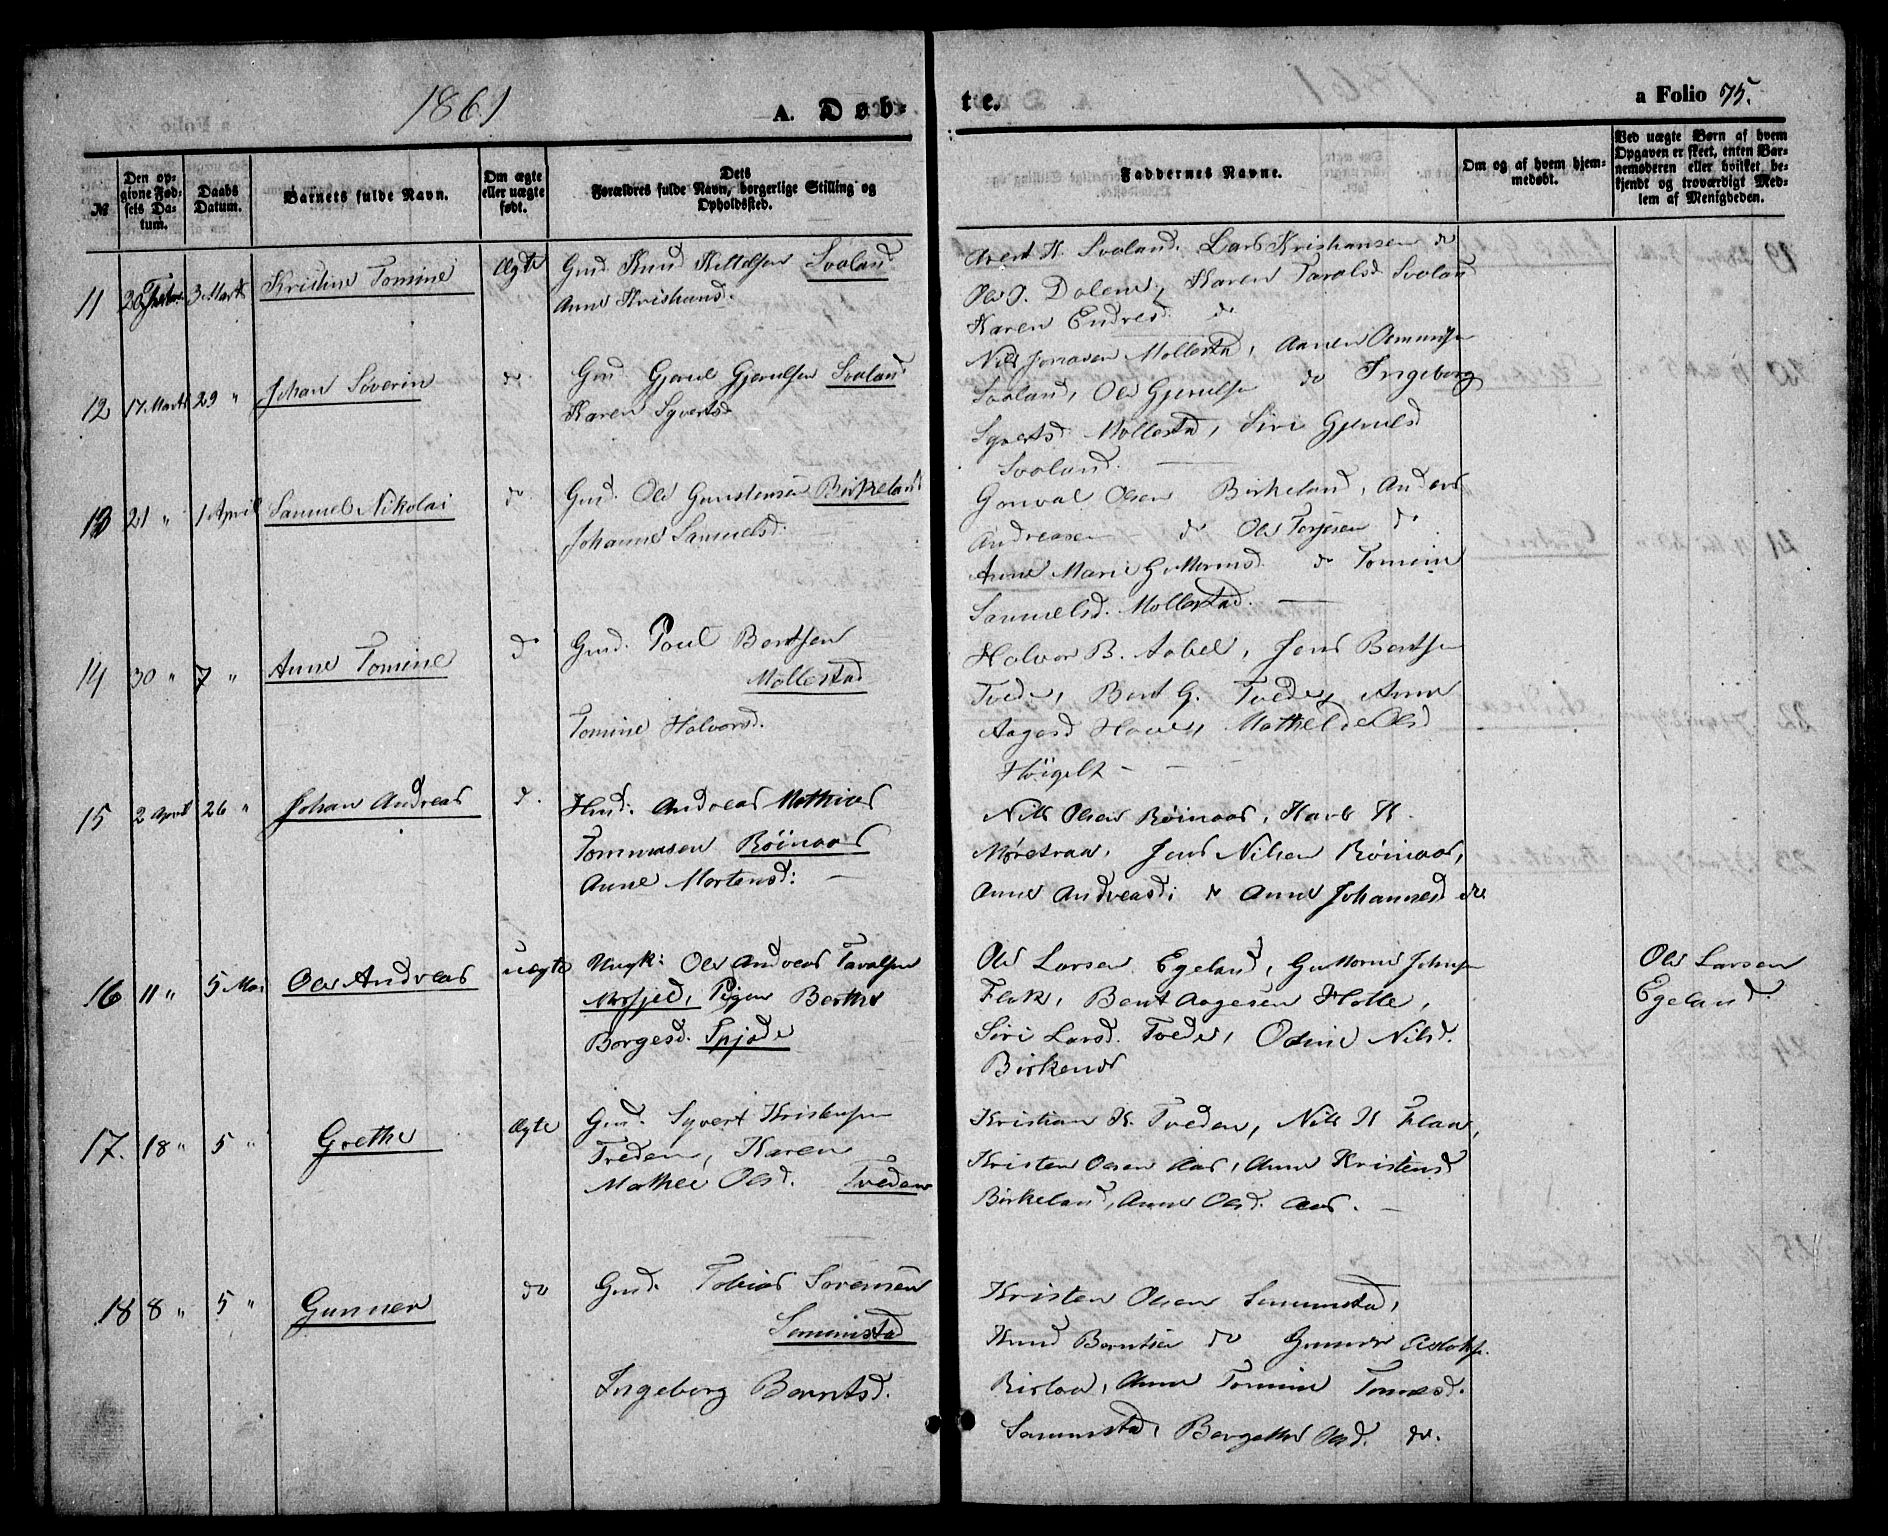 1861
A. Døb-
te.
a Folio 75.
№
Den op-
givne Fød-
sels Da-
tum.
Daabs
Datum.
Barnets fulde Navn.
Om ægte
eller uægte
født.
Dets
Forældres fulde Navn, borgerlige Stilling og
Opholdssted.
Faddernes Navne.
Om og af hvem hjem-
medøbt.
Ved uægte Børn af hvem
Opgaven er skeet, enten Bar-
nemoderen eller hvilket be-
kjendt og troværdigt Med-
lem af Menigheden.
11 3 Marts Kristine Tomine Ægte Gmd. Knud Kittelsen Svaland
Anne Kristensd.
K. Svaland, Lars Kristiansen do
Ole O. Dalene, Karen Taralsd. Svaland
Karen Endresd. do
12 17 Marts 29 " Johan Severin do. Gmd. Gjeruld Gjeruldsen Svaland
Karen Syvertsd.
Nils Jonasen Mollestad, Aanen Osmundsen
Svaland, Ole Gjeruldsen do Ingeborg
Syvertsd. Mollestad, Siri Gjerulsd
Svaland.
13 21 " 1 April Samuel Nikolai do. Gmd. Ole Gunstensen Birkeland
Johanne Samuelsd.
Gonval Olsen Birkeland, Anders
Andreasen do Ole Terjesen do
Anne Marie Guttormsd. do Tomine
Samuelsd. Mollestad.
14 30 " 7 " Anne Tomine do Gmd. Poul Bentsen
Mollestad
Tomine Halvorsd.
Halvor B. Aabel, Jens Bentsen
Tvede, Bent G. Tvede, Anne
Aagesd Hove, Mathilde Olsd
Høigelt
15 2 April 26 " Johan Andreas d. Hmd. Andreas Mathias
Tommasen Røinaas
Anne Mortensd:
Nils Olsen Røinaas, Karl K.
Møretraa, Jens Nilsen Røinaas,
Anne Andreasd; do Anne Johannesd do
16 11 " 5 Mai Ole Andreas uægte Ungk: Ole Andreas Taralsen
Mosfjeld, Pigen Berthe
Borgesd. Spjode
Ole Larsen Egeland, Guttorm Johnsen
Flak, Bent Aagesen Holte,
Siri Larsd. Tvede, Oline Nilsd.
Birkenes
Ole Larsen
Egeland.
17. 18 " 5 " Grethe Ægte Gmd. Syvert Kristensen
Treden, Karen
Mathea Olsd. Tveden
Kristian K. Tveden, Nils K Flaa,
Kristen Olsen Aas, Anne Kristensd
Birkeland, Anne Olsd. Aas.
18 8 " 5 " Gunner do Gmd. Tobias Sørensen
Senumstad
Ingeborg Berntsd.
Kristen Olsen Senumstad,
Knud Berntsen do Gunner Aslaksen
Birkeland, Anne Tomine Tomesd.
Senumstad, Bergette Olsd. do.